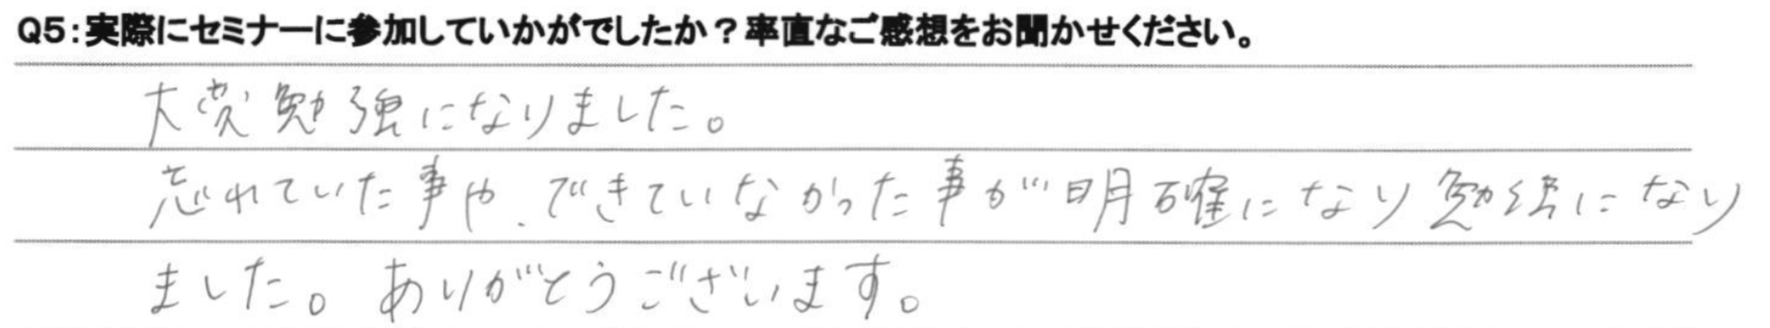 Q5:実際にセミナーに参加していかがでしたか？率直なご感想をお聞かせください。
大変勉強になりました。
忘れていた事や、できていなかった事が明確になり勉強になり
ました。ありがとうございます。